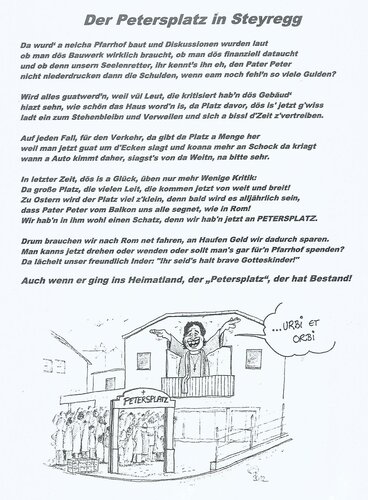 Der Petersplatz in Steyregg
Da wurd' a neicha Pfarrhof baut und Diskussionen wurden laut
ob man dös Bauwerk wirklich braucht, ob man dös finanziell dataucht
und ob denn unsern Seelenretter, ihr kennt's ihn eh, den Pater Peter
nicht niederdrucken dann die Schulden, wenn eam noch fehl'n so viele Gulden?
Wird alles guatwerd'n, weil vül Leut, die kritisiert hab'n dös Gebäud'
hiazt sehn, wie schön das Haus word'n is, da Platz davor, dös is' jetzt g'wiss
ladt ein zum Stehenbleibn und Verweilen und sich a bissl d'Zeit z'vertreiben.
Auf jeden Fall, für den Verkehr, da gibt da Platz a Menge her
weil man jetzt guat um d'Ecken siagt und koana mehr an Schock da kriagt
wann a Auto kimmt daher, siagst's von da Weitn, na bitte sehr.
In letzter Zeit, dös is a Glück, üben nur mehr Wenige Kritik:
Da große Platz, die vielen Leit, die kommen jetzt von weit und breit!
Zu Ostern wird der Platz viel z'klein, denn bald wird es alljährlich sein,
dass Pater Peter vom Balkon uns alle segnet, wie in Rom!
Wir hab'n in ihm wohl einen Schatz, denn wir hab'n jetzt an PETERSPLATZ.
Drum brauchen wir nach Rom net fahren, an Haufen Geld wir dadurch sparen.
Man kanns jetzt drehen oder wenden oder sollt man's gar für'n Pfarrhof spenden?
Da lächelt unser freundlich Inder: "Ihr seid's halt brave Gotteskinder!"
Auch wenn er ging ins Heimatland, der „Petersplatz", der hat Bestand!
...URBI ET
ORBI
PETERSPLATZ